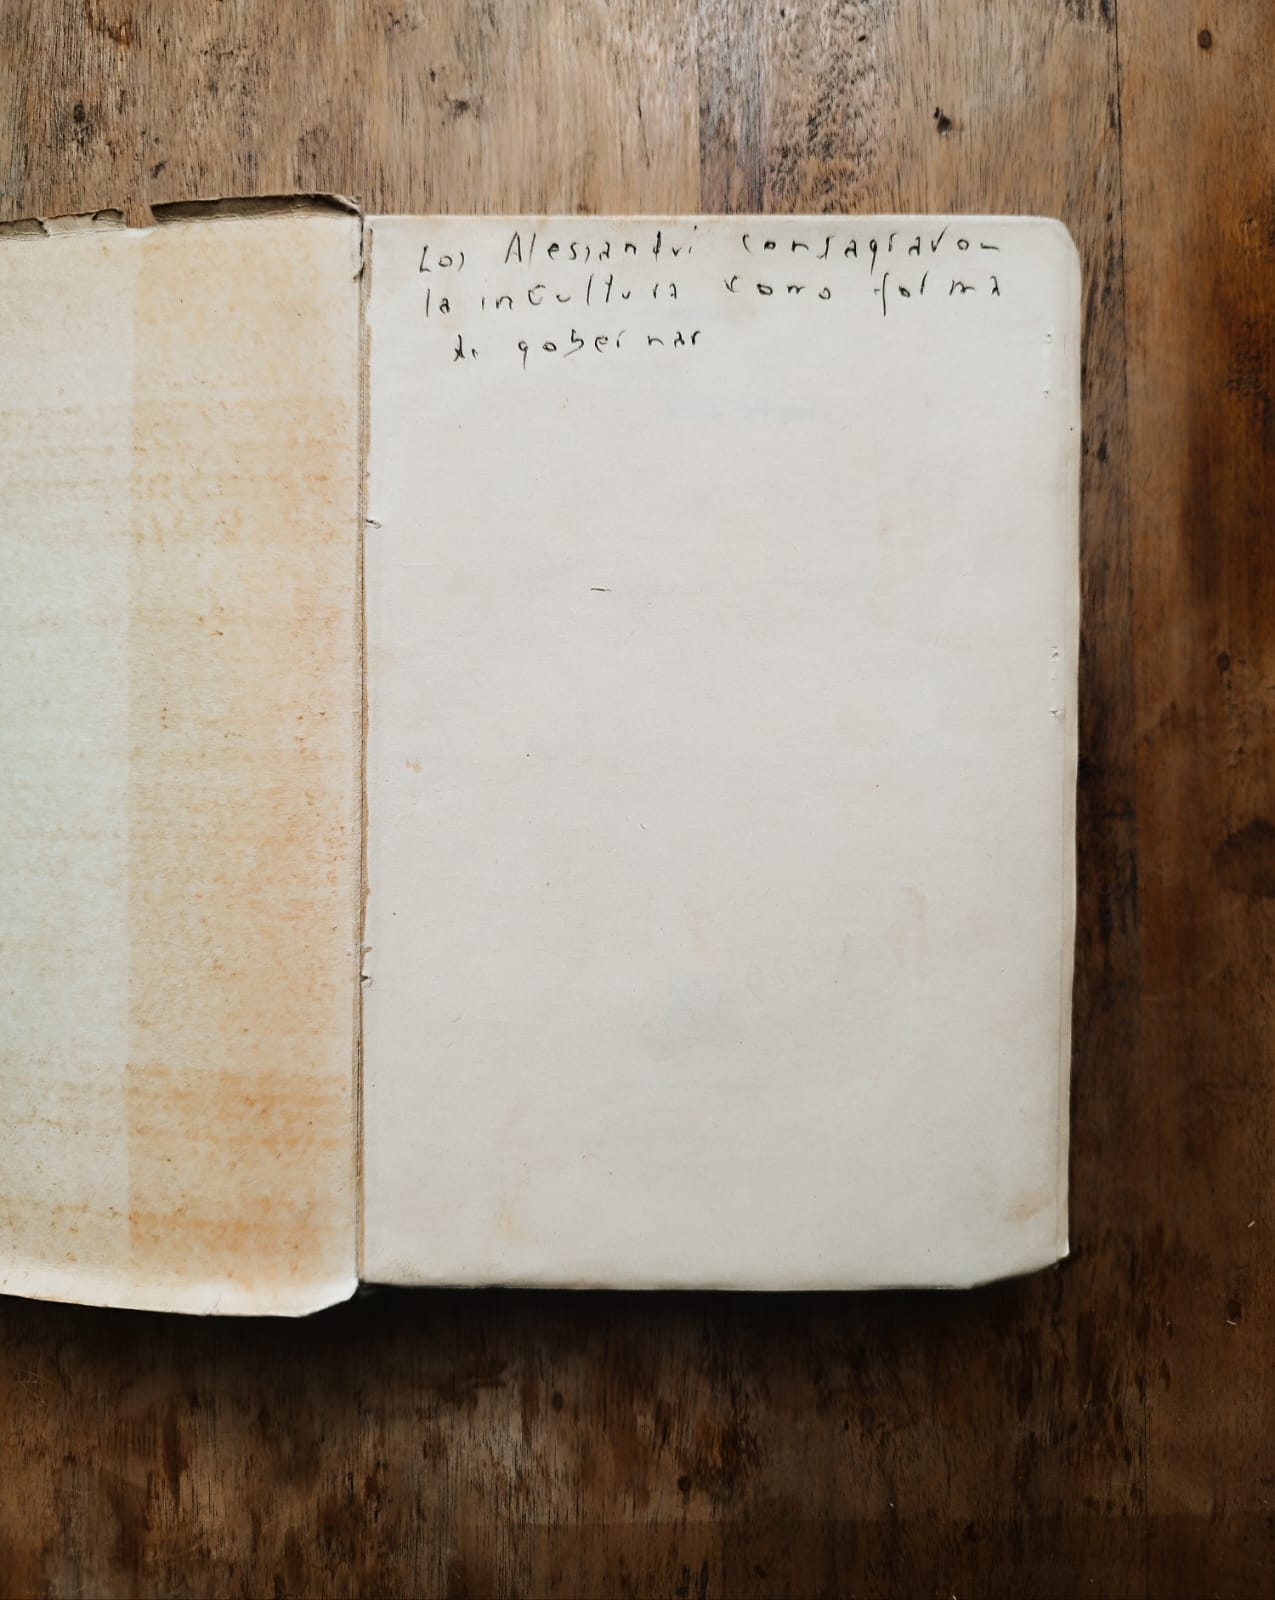 Los Alessandri consagraron
la incultura como forma
de gobernar